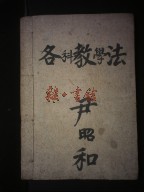 各科教學法
尹昭和